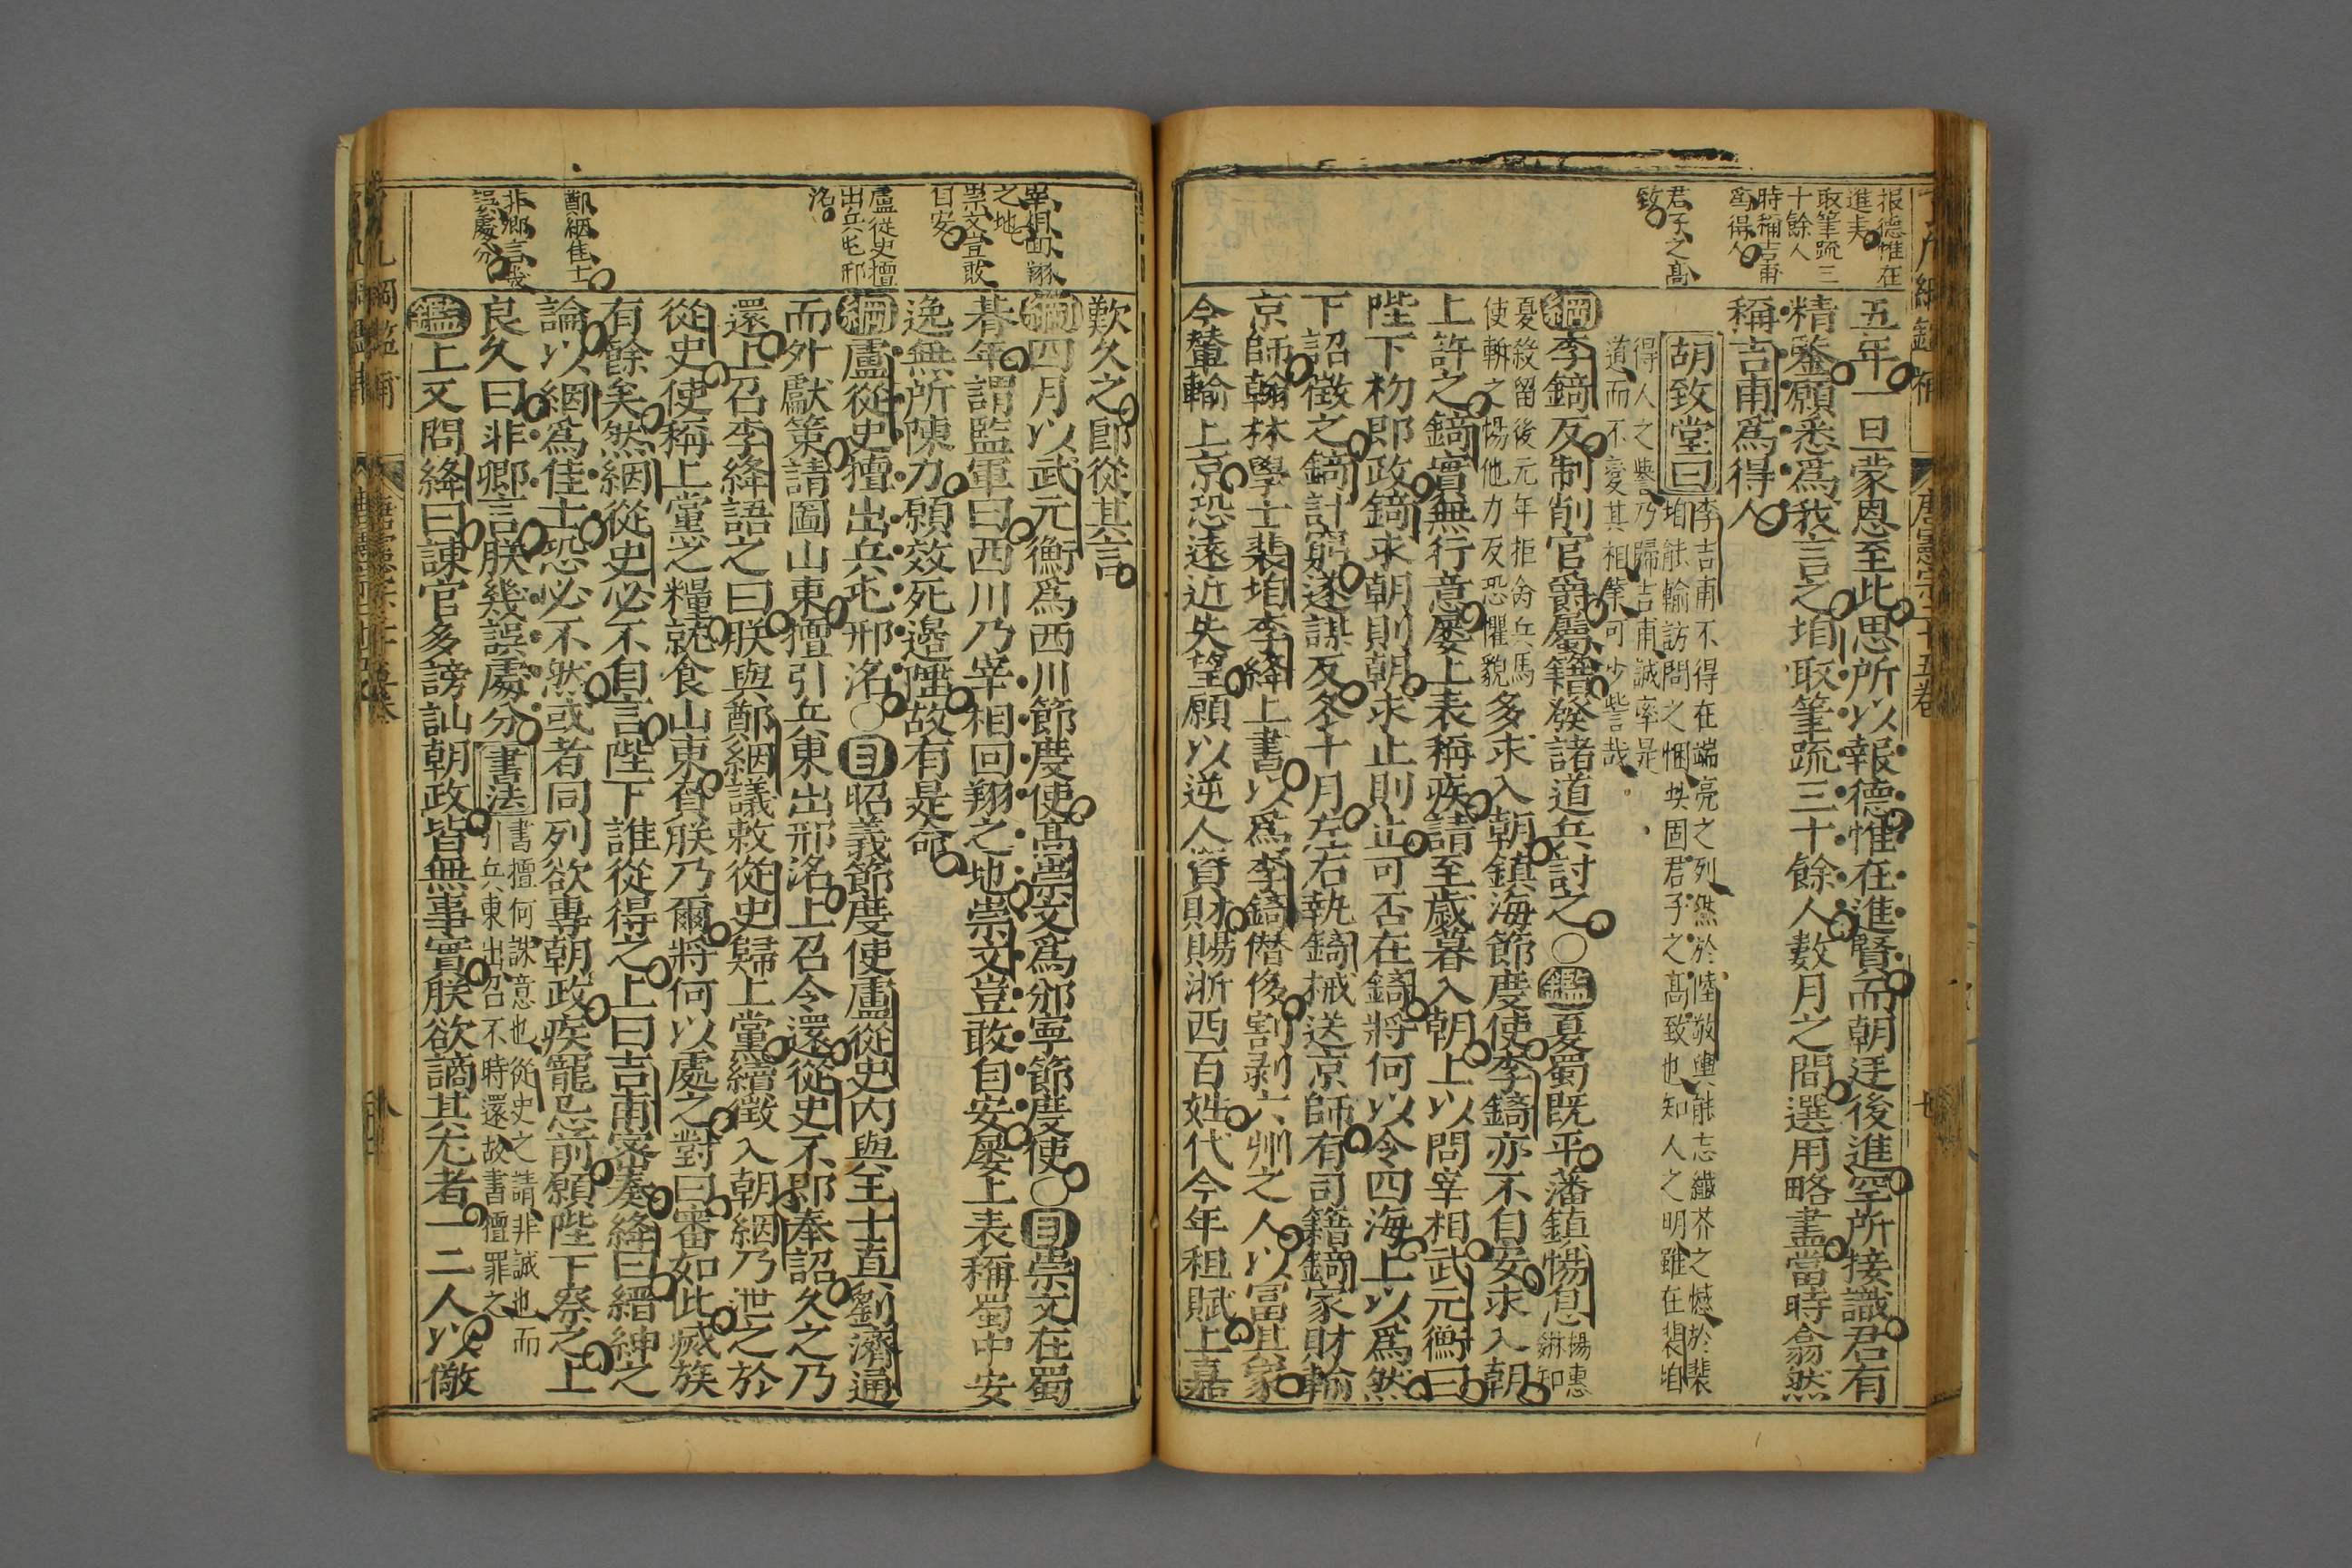 报德惟在
進夫
取筆疏三
十餘人
時稱吉甫
爲得人
君子之高
致
五年一旦蒙恩至此思所以報德惟在進賢而朝廷後進空所接識君有
精鑒願悉爲我言之垍取筆疏三十餘人數月之間選用略盡當時翕然
稱吉甫爲得人
胡致堂曰李吉甫不得在端亮之列然於陸敬輿能忘纖芥之憾於裴垍能輸訪問之悃此固君子之高致也知人之明雖在裴垍
得人之譽乃歸吉甫誠率是道而不變其相業可少訾哉
綱李錡反制削官爵屬籍發諸道兵討之○鑑夏蜀既平藩鎮惕息楊惠琳知
夏殺留後元年拒命兵馬使斬之惕他力反恐懼貌多求入朝鎮海節度使李錡亦不自安求入朝
上許之錡實無行意屢上表稱疾請至歲暮入朝上以問宰相武元衡曰
陛下初即政錡求朝則朝求止則止可否在錡將何以令四海上以爲然
下詔徵之錡計窮遂謀反冬十月左右執錡械送京師有司籍錡家財輸
京師翰林學士裴垍李絳上書以爲李錡僭侈割剥六州之人以冨其家
今輦輸上京恐遠近失望願以逆人資財賜浙西百姓代今年租賦上嘉
宰相回翔
之地
崇文豈敢
自安
盧從史擅
出兵屯邢
洺
鄭絪佳士
非卿言幾
誤處分
歎久之卽從其言
綱四月以武元衡爲西川節度使高崇文爲邠寧節度使○目崇文在蜀
朞年謂監軍曰西川乃宰相回翔之地崇文豈敢自安屢上表稱蜀中安
逸無所陳力願效死邊陲故有是命
綱盧從史擅出兵屯邢洺○目昭義節度使盧從史内與王士真劉濟通
而外獻策請圖山東擅引兵東出邢洺上召令還從史不即奉詔久之乃
還上召李絳語之曰朕與鄭絪議敕從史歸上黨續徵入朝絪乃泄之於
從史使稱上黨之糧就食山東負朕乃爾將何以處之對曰審如此滅族
有餘矣然絪從史必不自言陛下誰從得之上曰吉甫密奏絳曰縉紳之
論以絪爲佳士恐必不然或者同列欲專朝政疾寵忌前願陛下察之上
良久曰非卿言朕幾誤處分書法書擅何誅意也從史之請非誠也而引兵東出召不時還故書擅罪之
鑑上又問絳曰諫官多謗訕朝政皆無事實朕欲謫其尤者一二人以儆